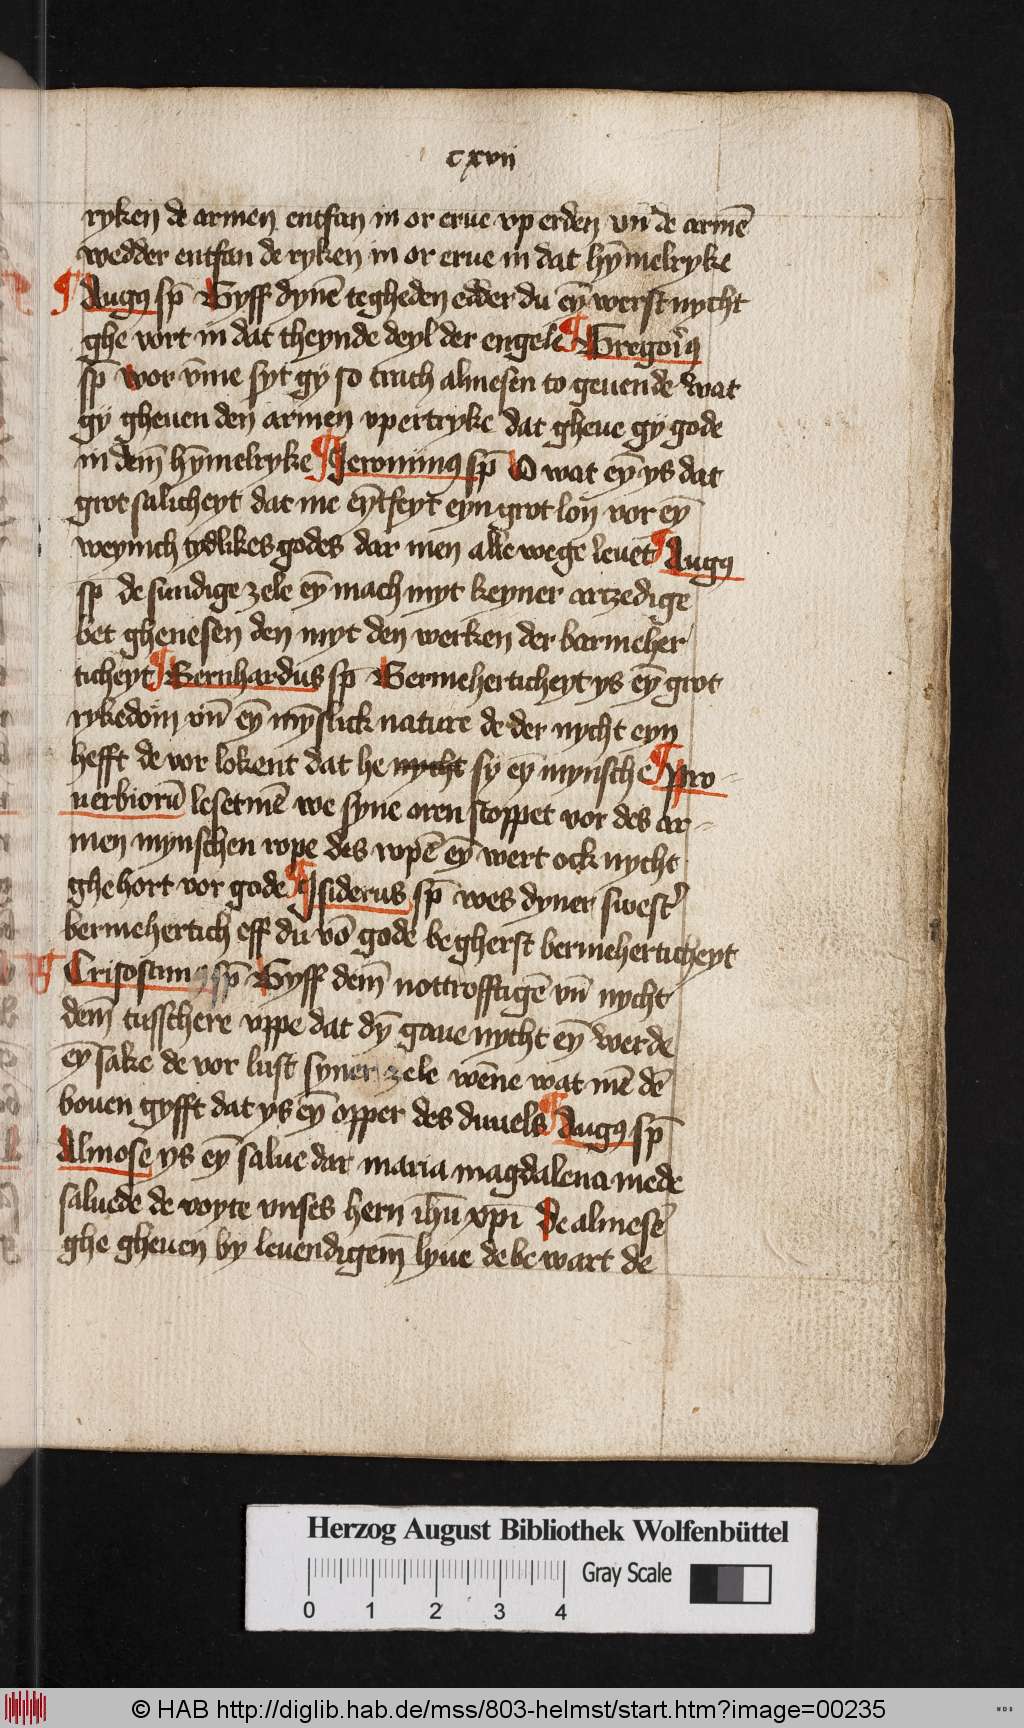 cxvij
ryken de armen entfan in or erue vp erden vn̄ de armē
wedder entfan de ryken in or erue in dat hȳmelryke
¶ Augꝯ sp̄ Gyff dynē tegheden edder du eȳ werst nycht
ghe vort in dat theynde deyl der engele ¶ Gregoriꝯ
sp̄ wor v̄me syt gy so trach almesen to geuende wat
gy gheuen den armen vp ertryke dat gheue gy gode
in dem̄ hȳmelryke ¶ Jeronimꝯ sp̄ O wat eȳ ys dat
grot salicheyt dat me eȳtfeyt eyn grot lon vor eȳ
weynich tydlikes godes dar men alle wege leuet ¶ Augꝯ
sp̄ de sundige zele eȳ mach myt keyner artzedige
bet ghenesen den myt den werken der barmeher
ticheyt ¶ Bernhardus sp̄ Bermeherticheyt ys eȳ grot
rykedom vn̄ eȳ mȳslick nature de der nycht eyn
hefft de vor lokent dat he nycht sy eȳ mynsche ¶ Pro
uerbiorū leset mē we syne oren stoppet vor des ar
men mynschen rope des ropē eȳ wert ock nycht
ghe hort vor gode ¶ Ysiderus sp̄ wes dyner swest'
bermehertich eff du vō gode begherst bermeherticheyt
¶ Crisostimꝯ sp̄ Gyff dem̄ nottrofftigē vn̄ nycht
dem̄ tusschere vppe dat dȳ gaue nycht eȳ werde
eȳ sake de vor lust syner zele wēne wat mē dē
bouen gyfft dat ys eȳ opper des duuels ¶ Augꝯ sp̄
Almose ys eȳ salue dar maria magdalena mede
saluede de voyte vnses hern ih̄u xp̄i De almesē
ghe gheuen by leuendigem̄ lyue de be wart de
Herzog August Bibliothek Wolfenbüttel
Gray Scale
0 1 2 3 4
© HAB http://diglib.hab.de/mss/803-helmst/start.htm?image=00235